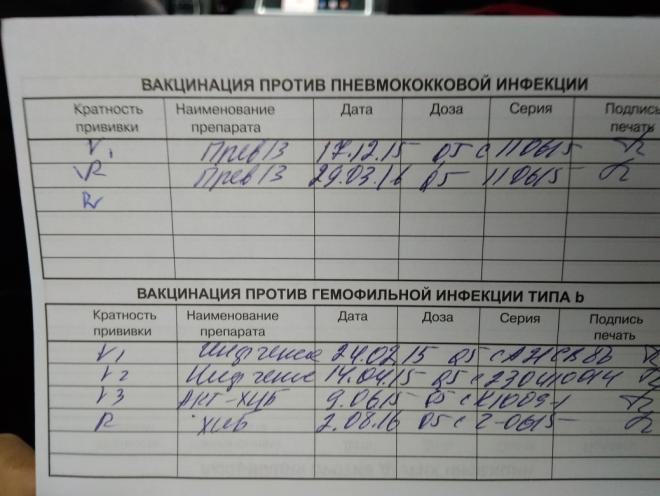 ВАКЦИНАЦИЯ ПРОТИВ ПНЕВМОКОККОВОЙ ИНФЕКЦИИ
Кратность прививки Наименование препарата Дата Доза Серия Подпись печать
V1 Прев13 17.12.15 05 с 110615
R Прев13 29.03.16 05 110615
R
ВАКЦИНАЦИЯ ПРОТИВ ГЕМОФИЛЬНОЙ ИНФЕКЦИИ ТИПА b
Кратность прививки Наименование препарата Дата Доза Серия Подпись печать
V1 24.02.15 05 с
V2 14.04.15 05 с
V3 Акт-хиб 9.06.15 05 с
R хиб 2.08.16 05 с